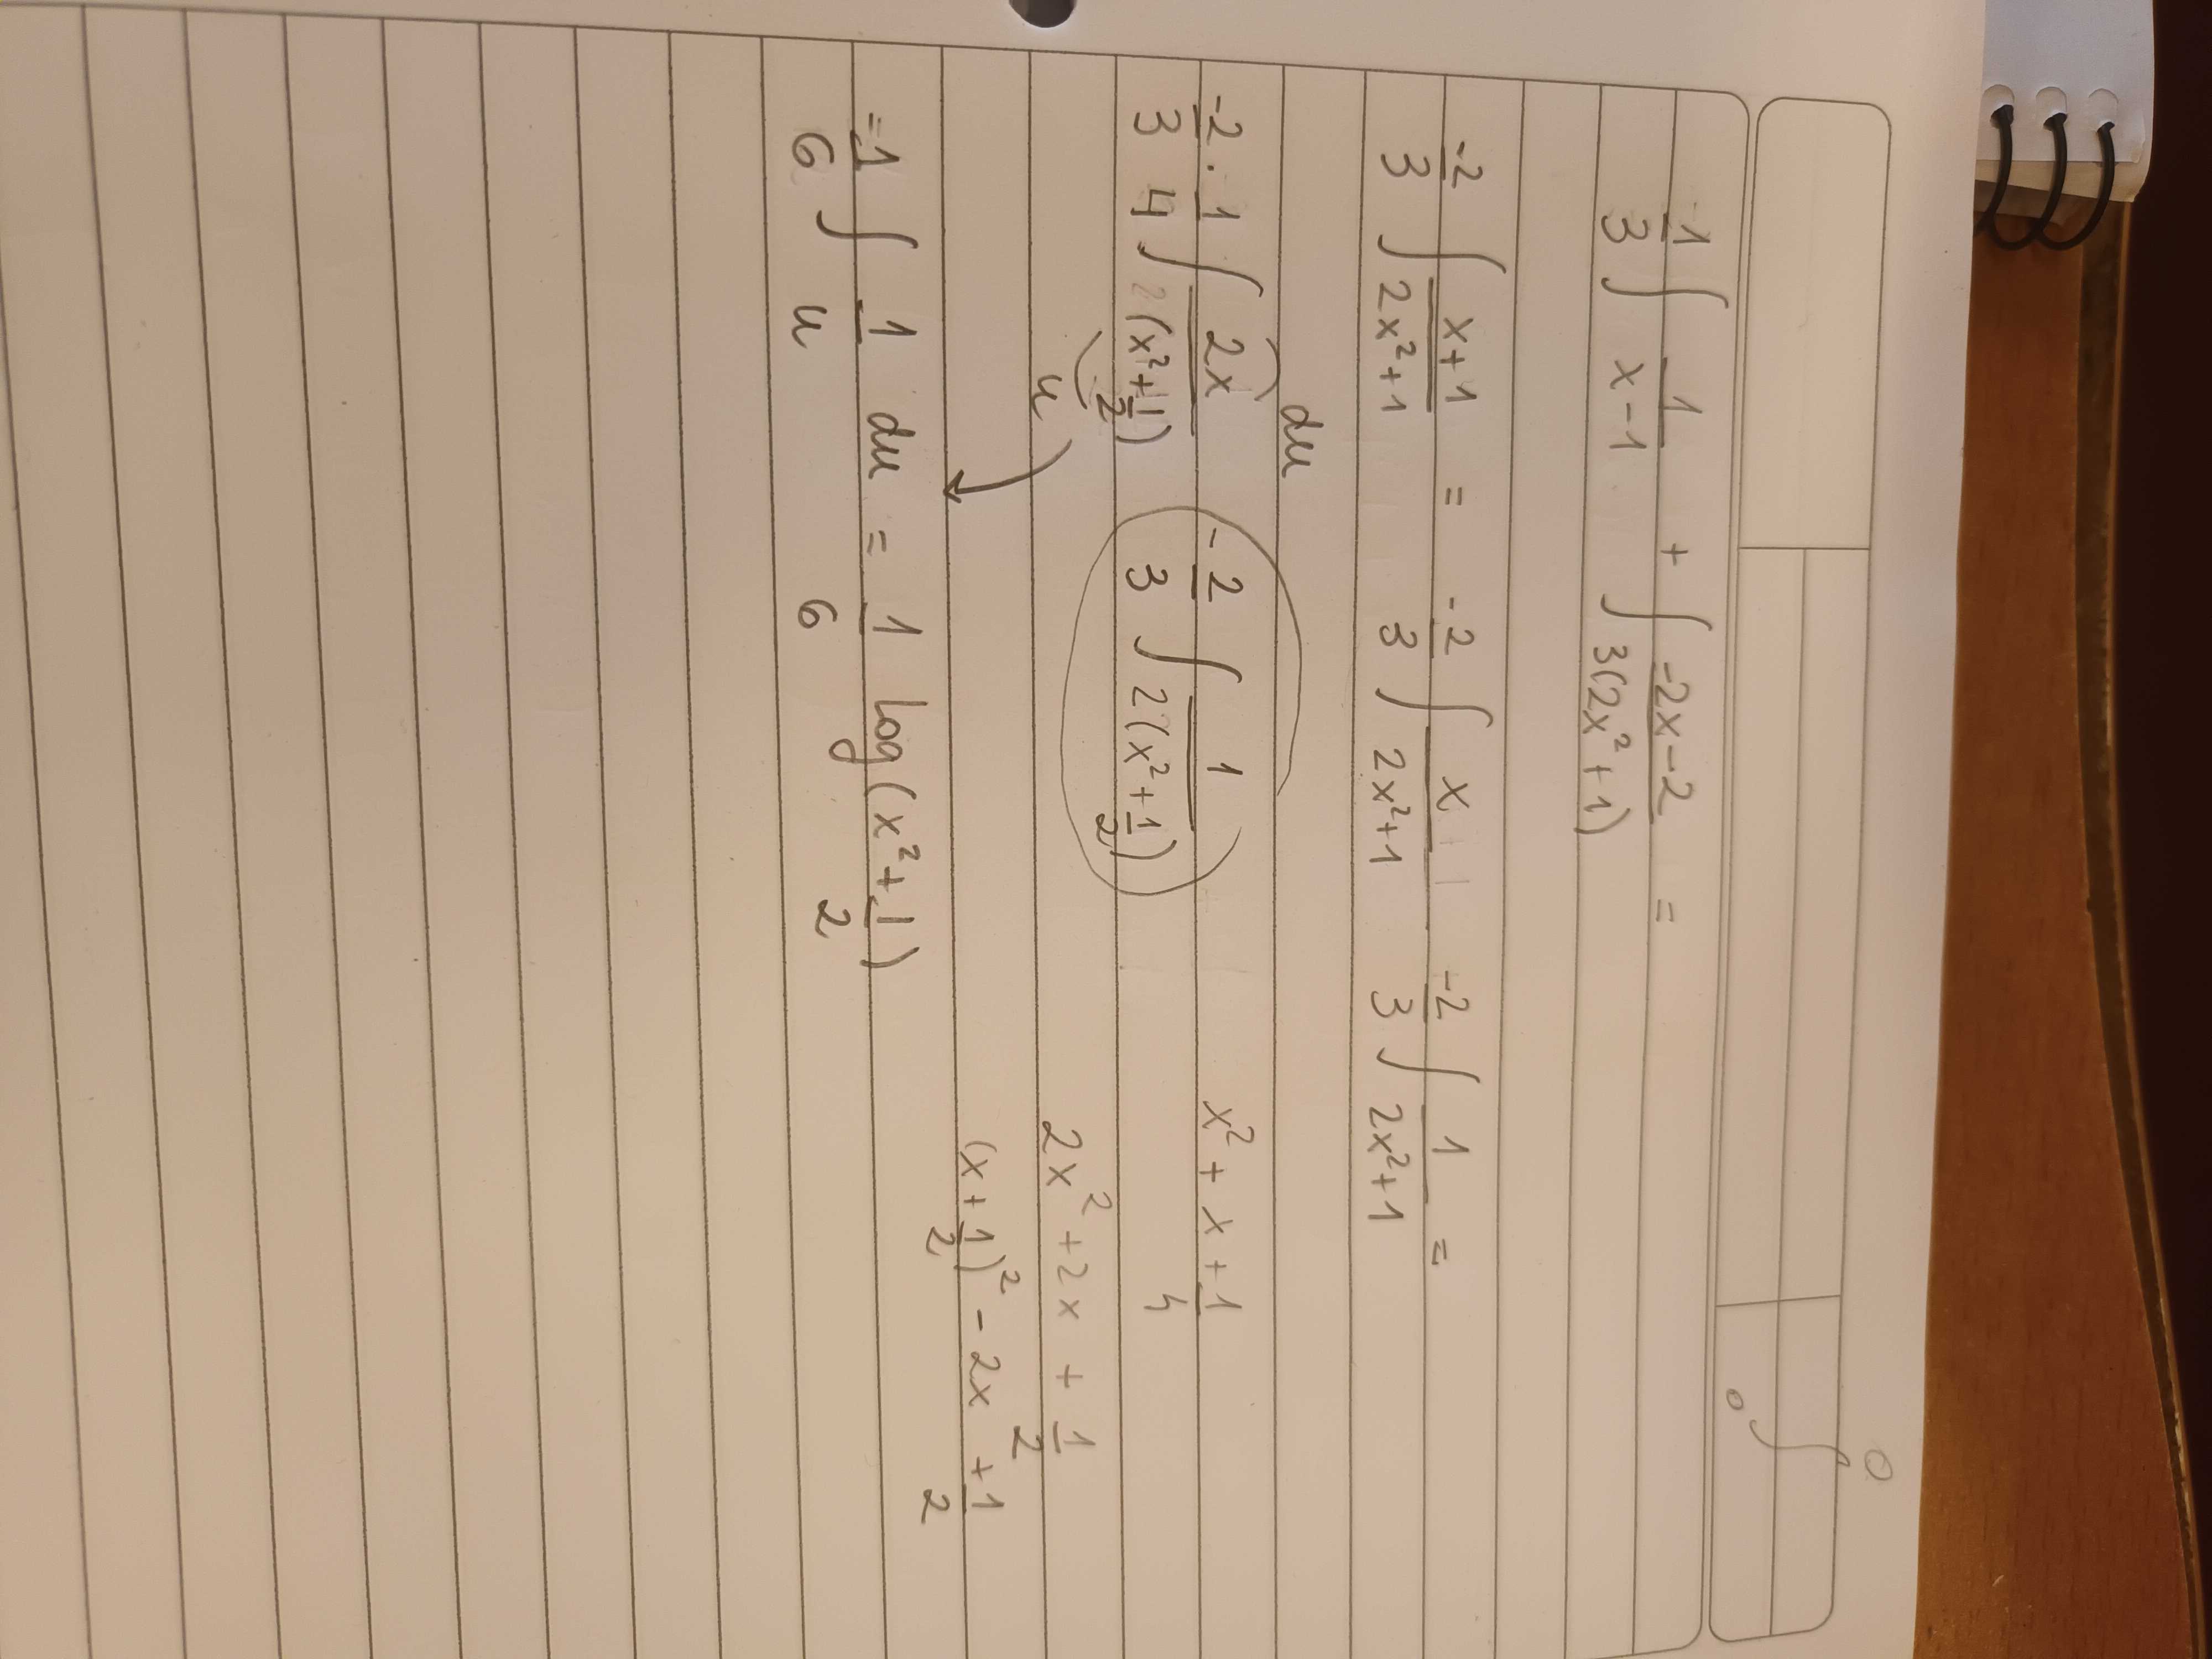 ∫ 0 0
1/3 ∫ 1/(x-1) + ∫ (-2x-2)/(3(2x²+1)) =
-2/3 ∫ (x+1)/(2x²+1) = -2/3 ∫ x/(2x²+1) -2/3 ∫ 1/(2x²+1) =
du
-2/3 · 1/4 ∫ 2x/(2(x²+1/2)) -2/3 ∫ 1/(2(x²+1/2)) x² + x + 1/4
u 2x² + 2x + 1/2
(x+1/2)² - 2x + 1/2
=1/6 ∫ 1/u du = 1/6 log(x²+1/2)